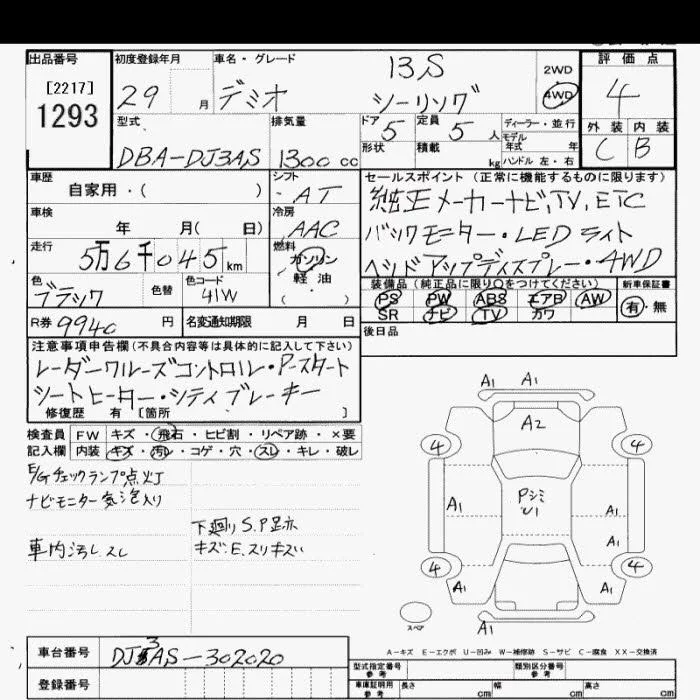 出品番号 初度登録年月 車名・グレード 評価点
[2217]
1293
29 月 デミオ 13S シーリング 2WD 4WD 4
型式 排気量 ドア 5 定員 5 人 ディーラー・並行 外装 内装
モデル年式 年
DBA-DJ3AS 1300 cc 形状 積載 kg ハンドル 左・右 C B
車歴 シフト セールスポイント (正常に機能するものに限ります)
自家用・( ) AT 純正メーカーナビ,TV,ETC
車検 冷房
年 月( 日) AAC バックモニター・LEDライト
走行 燃料
5万6千045km ガソリン ヘッドアップディスプレー・4WD
軽油
( )
色 色替 色コード 装備品(純正品に限り○をつけてください) 新車保証書
ブラック 41W PS PW ABS エアB AW 有・無
SR ナビ TV カワ
R券 9940 円 名変通知期限 月 日 後日品
注意事項申告欄(不具合内容等は具体的に記入して下さい)
レーダークルーズコントロル・Pースタート
シートヒーター・シティブレーキー
修復歴 有 [箇所 ]
検査員 FW キズ・飛石・ヒビ割・リペア跡・×要
記入欄 内装 キズ・汚レ・コゲ・穴・スレ・キレ・破レ
E/Gチェックランプ点灯
ナビモニター気泡入り
下廻りS.P跡
車内汚レスレ キズ.E.スリキズい
A1 A1
A2
4 4
Pシミ
U1
A1 A1
A1
4 4
A1 A1
A1
スペア
A-キズ E-エクボ U-凹み W-補修跡 S-サビ C-腐食 XX-交換済
車台番号 DJ3AS-302020
登録番号
型式指定番号 参考 類別区分番号 参考
車庫証明用 参考 長さ cm 幅 cm 高さ cm